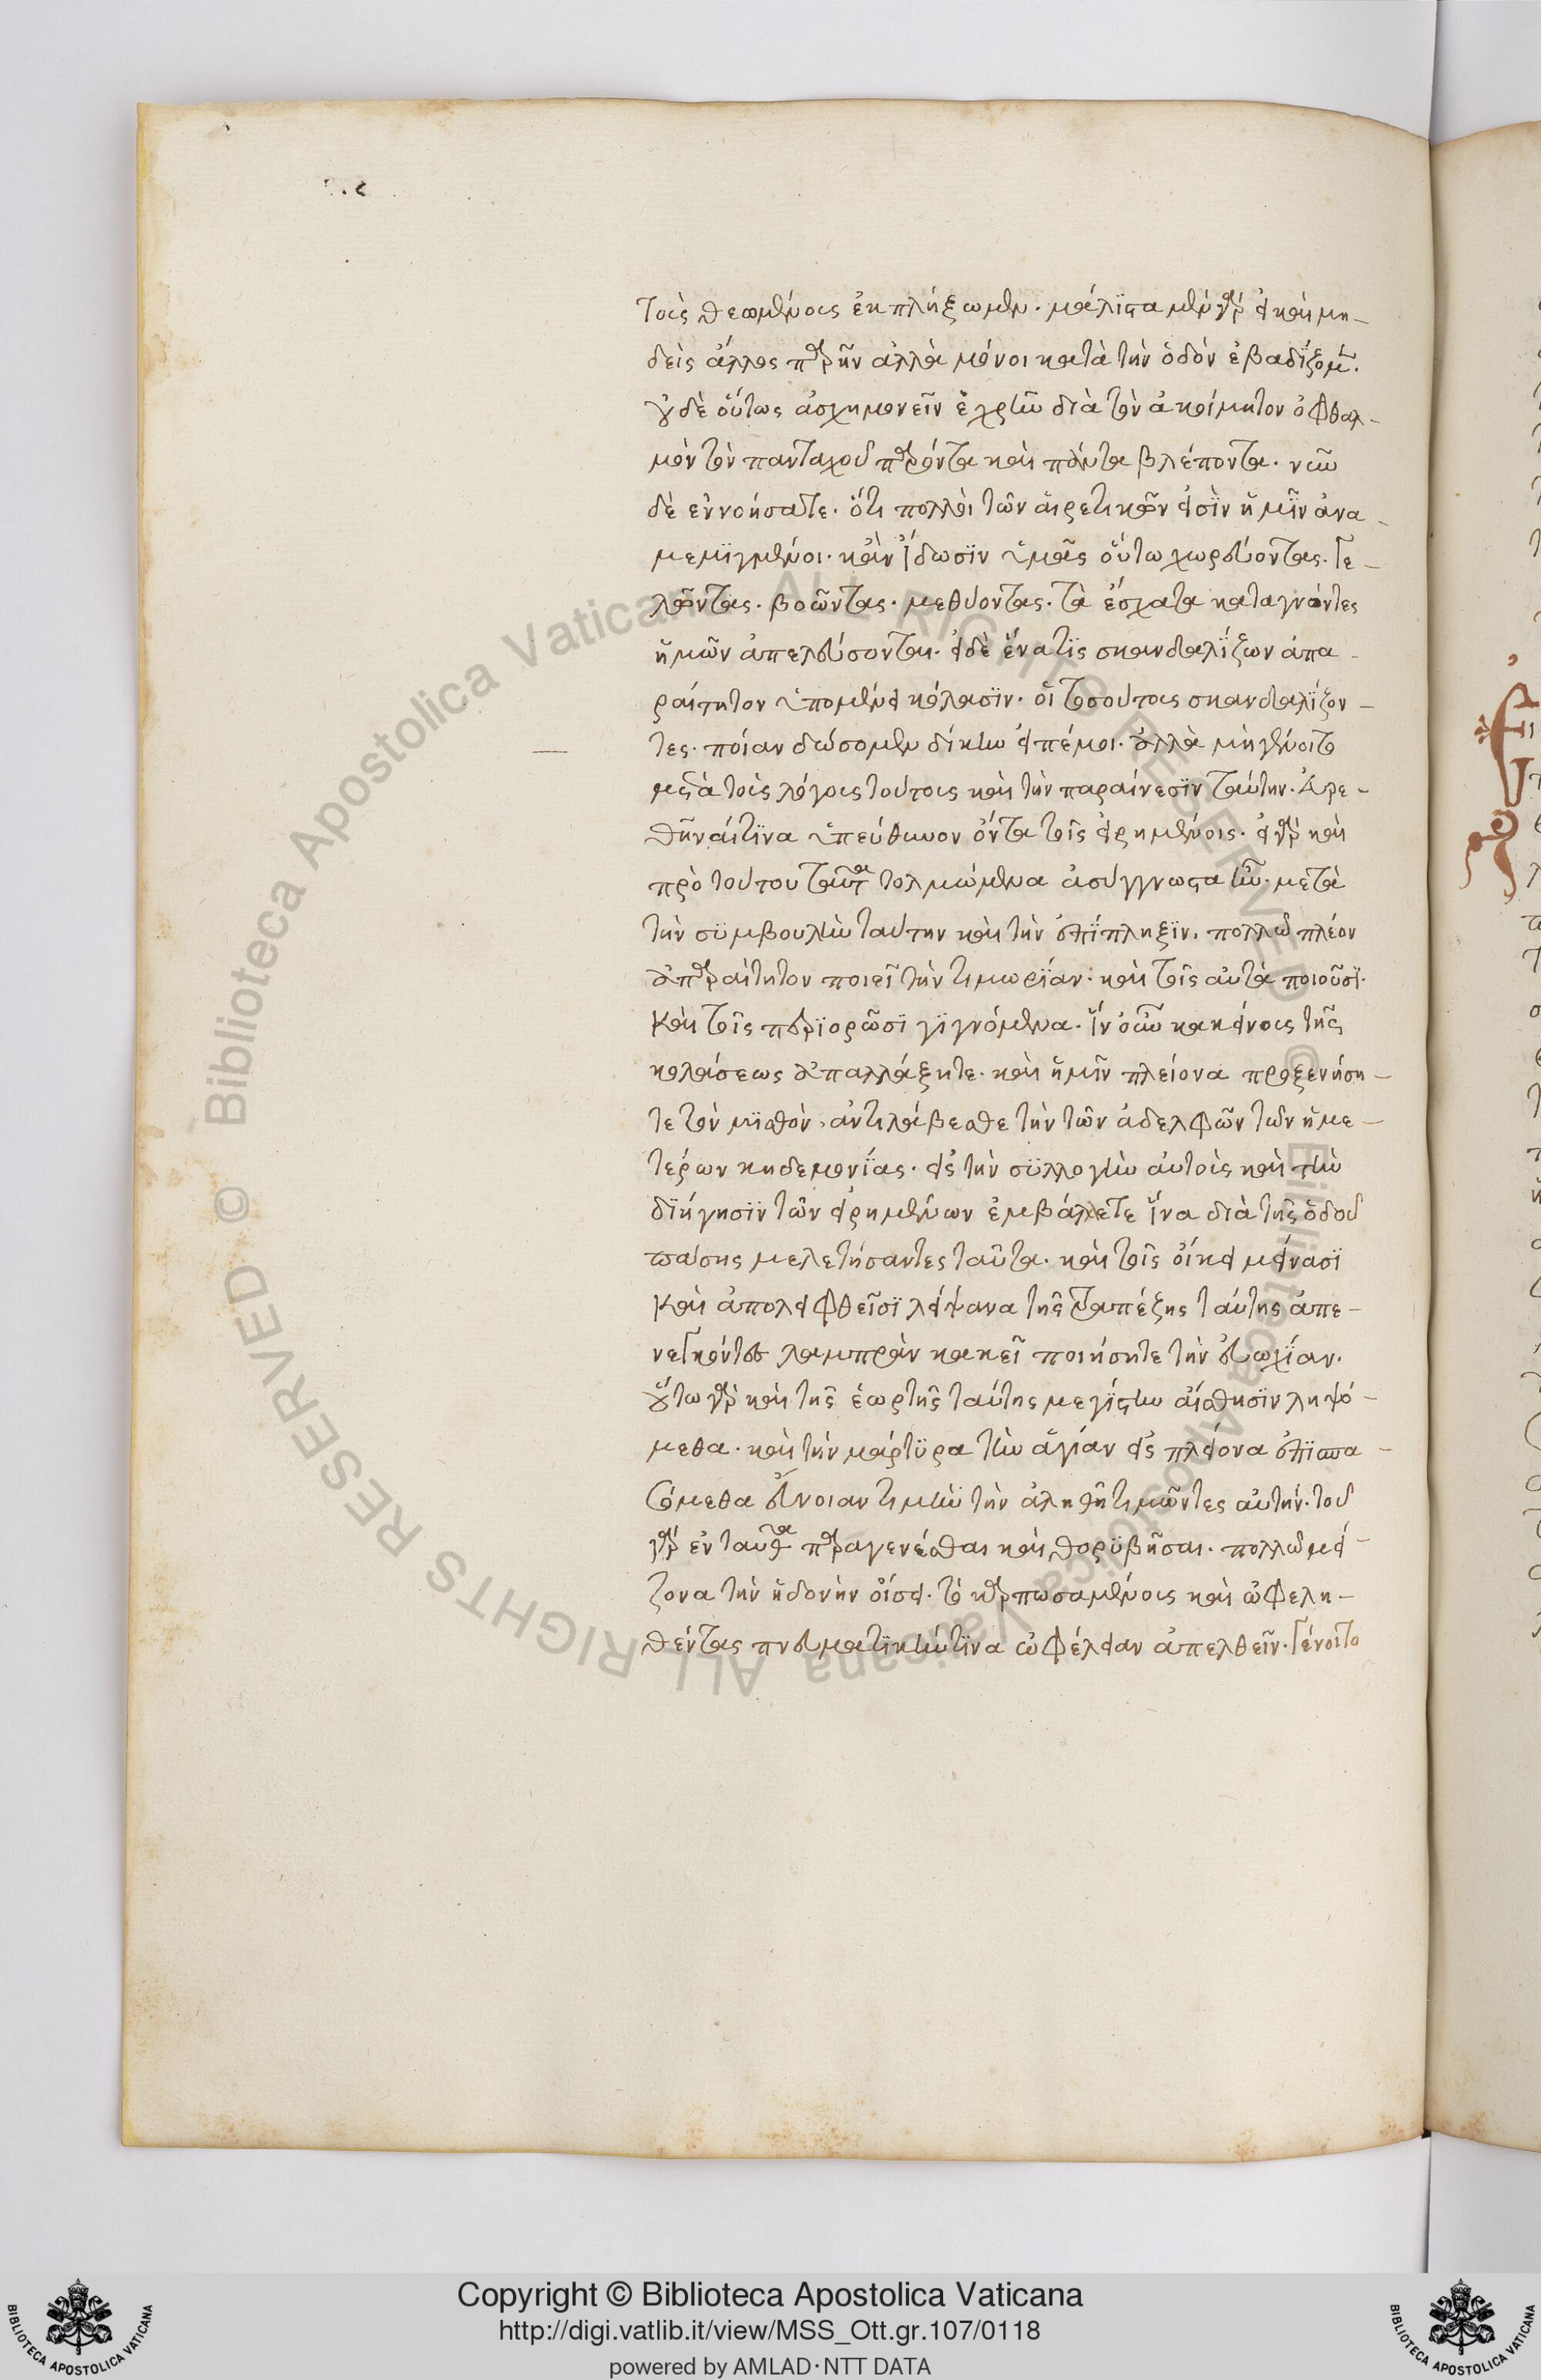 τοὺς θεωμένους ἐκπλήξωμεν. μάλιϊστα μὲν γὰρ εἰ καὶ μη-
δεὶς ἄλλος παρῆν ἀλλὰ μόνοι κατὰ τὴν ὁδὸν ἐβαδίζομεν.
οὐδὲ οὕτως ἀσχημονεῖν ἐχρῆν διὰ τὸν ἀκοίμητον ὀφθαλ-
μὸν τὸν πανταχοῦ παρόντα καὶ πάντα βλέποντα. νῦν
δὲ ἐννοήσατε. ὅτι πολλοὶ τῶν αἱρετικῶν εἰσὶν ἡμῖν ἀνα-
μεμϊγμένοι. κἂν ἴδωσϊν ὑμᾶς οὕτω χορεύοντας. γε-
λῶντας. βοῶντας. μεθύοντας. τὰ ἔσχατα καταγνόντες
ἡμῶν ἀπελεύσονται. εἰ δὲ ἕνα τὶς σκανδαλίζων ἀπα-
ραίτητον ὑπομένει κόλασϊν. οἱ τοσούτους σκανδαλίζον-
τες. ποίαν δώσομεν δίκην εἰπέ μοι. ἀλλὰ μὴ γένοιτο
μετὰ τοὺς λόγους τούτους καὶ τὴν παραίνεσϊν ταύτην. εὑρε-
θῆναί τϊνα ὑπεύθυνον ὄντα τοῖς εἰρημένοις. εἰ γὰρ καὶ
πρὸ τούτου ταῦτα τολμώμενα ἀσύγγνωστα ἦν. μετὰ
τὴν συμβουλὴν ταύτην καὶ τὴν ἐπίπληξϊν. πολλῷ πλέον
ἀπαραίτητον ποιεῖ τὴν τιμωρίαν. καὶ τοῖς αὐτὰ ποιοῦσϊ.
καὶ τοῖς περϊορῶσϊ γϊγνόμενα. ἵν' οὖν κακείνους τῆς
κολάσεως ἀπαλλάξητε. καὶ ἡμῖν πλείονα προξενήση-
τε τὸν μϊσθὸν, ἀντιλάβεσθε τὴν τῶν ἀδελφῶν τῶν ἡμε-
τέρων κηδεμονίας. εἰς τὴν συλλογὴν αὐτοὺς καὶ τὴν
διήγησϊν τῶν εἰρημένων ἐμβάλετε ἵνα διὰ τῆς ὁδοῦ
πάσης μελετήσαντες ταῦτα. καὶ τοῖς οἴκει μείνασϊ
καὶ ἀπολειφθεῖσϊ λείψανα τῆς τραπέζης ταύτης ἀπε-
νεγκόντες λαμπρὰν κακεῖ ποιήσητε τὴν εὐωχίαν.
οὕτω γὰρ καὶ τῆς ἑωρτῆς ταύτης μεγίστην αἴσθησϊν ληψό-
μεθα. καὶ τὴν μάρτυρα τὴν ἁγίαν εἰς πλείονα ἐπϊσπα
σόμεθα εὔνοιαν τιμὴν τὴν ἀληθῆ τιμῶντες αὐτήν. τοῦ
γὰρ ἐνταῦθα παραγενέσθαι καὶ θορυβῆσαι. πολλῷ μεί-
ζονα τὴν ἡδονὴν οἴσει. τὸ καρπωσαμένους καὶ ὠφελη-
θέντας πνευματϊκήν τϊνα ὠφέλειαν ἀπελθεῖν. γένοιτο
Copyright © Biblioteca Apostolica Vaticana
http://digi.vatlib.it/view/MSS_Ott.gr.107/0118
powered by AMLAD·NTT DATA